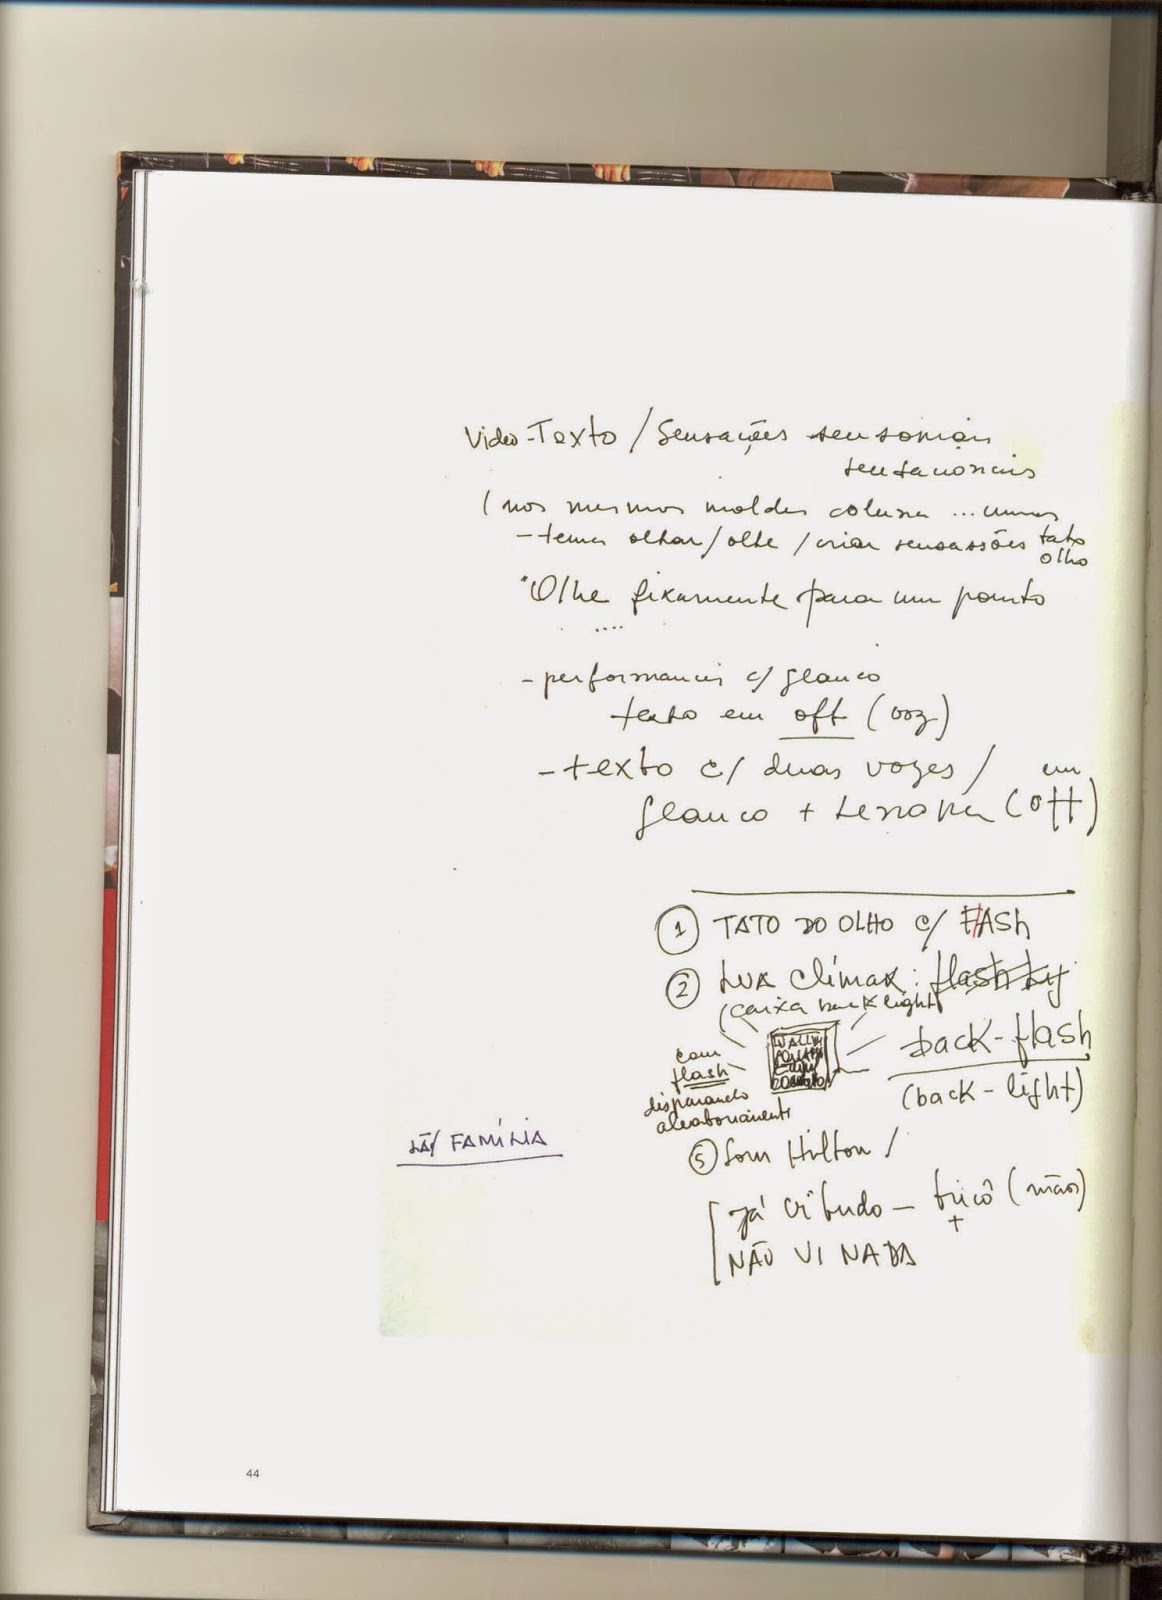 Video-Texto / Sensações sensoriais
sensacionais
( nos mesmos moldes coluna ...
- tema olhar / olhe / criar sensassões tato
olho
"Olhe fixamente para um ponto
....
- performances c/ glauco
texto em off (voz)
- texto c/ duas vozes / em
glauco + Lenora (off)
① TATO DO OLHO c/ FlASh
② LUA Clímax : flash
(caixa back light)
back-flash
(back-light)
com
flash
disparando
aleatoriamente
LÃ/ FAMÍLIA
⑤ Som Hilton /
já vi tudo — tricô (mãos)
+
NÃO VI NADA
44